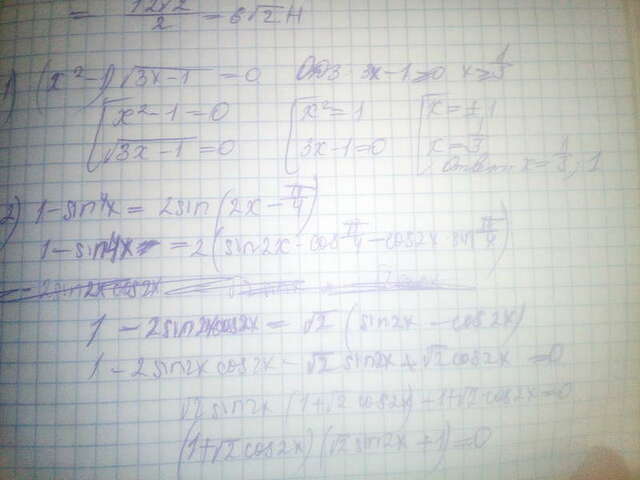 = 12√2/2 = 6√2 Н
1) (x²-1)√3x-1 = 0 ОДЗ 3x-1≥0 x≥1/3
[x²-1=0 [x²=1 [x=±1
[√3x-1=0 3x-1=0 x=1/3
Ответ x=1/3; 1
2) 1-sin4x = 2sin(2x-π/4)
1-sin4x = 2(sin2x·cosπ/4-cos2x·sinπ/4)
1-2sin2xcos2x=√2(sin2x-cos2x)
1-2sin2xcos2x-√2sin2x+√2cos2x=0
√2sin2x(1+√2cos2x)-1+√2cos2x=0
(1+√2cos2x)(√2sin2x+1)=0